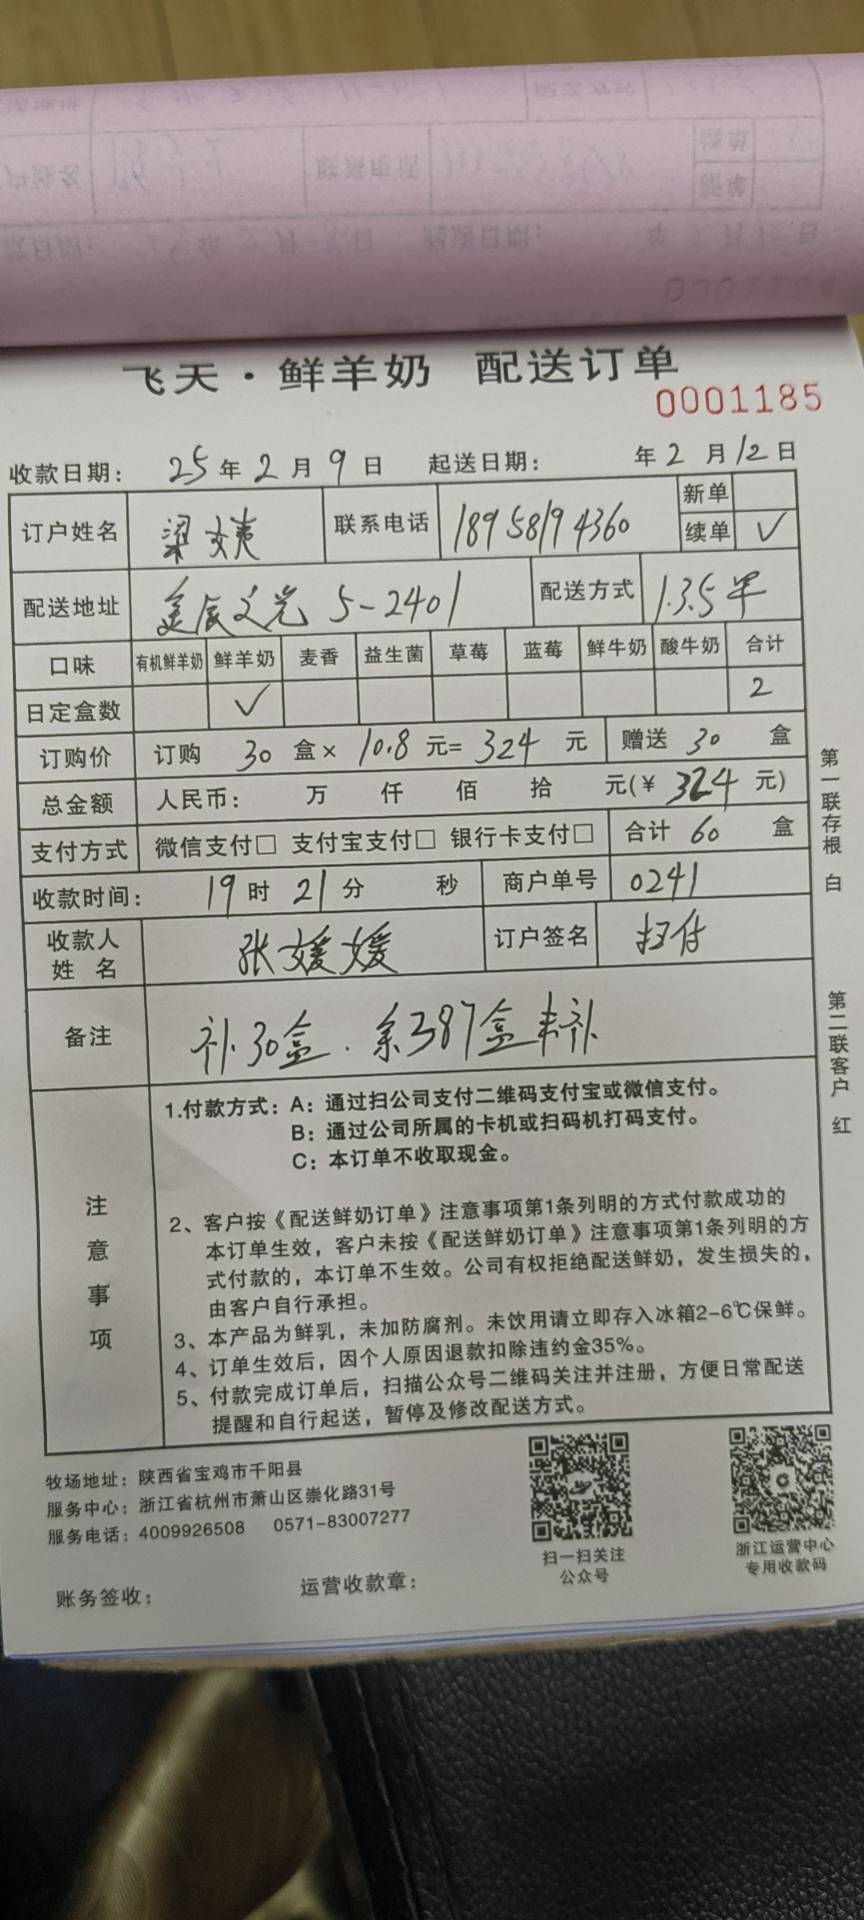 飞天·鲜羊奶 配送订单
0001185
收款日期： 25年2月9日 起送日期： 年2月12日
订户姓名 梁姨 联系电话 18958194360 新单
续单 ✓
配送地址 美辰文苑 5-2401 配送方式 1.3.5早
口味 有机鲜羊奶 鲜羊奶 麦香 益生菌 草莓 蓝莓 鲜牛奶 酸牛奶 合计
日定盒数 ✓ 2
订购价 订购 30 盒× 10.8 元= 324 元 赠送 30 盒
总金额 人民币： 万 仟 佰 拾 元(¥ 324 元)
支付方式 微信支付□ 支付宝支付□ 银行卡支付□ 合计 60 盒
收款时间： 19时21分 秒 商户单号 0241
收款人姓名 张媛媛 订户签名 扫付
备注 补30盒.余387盒未补
第一联存根 白
第二联客户 红
注意事项
1.付款方式：A：通过扫公司支付二维码支付宝或微信支付。
B：通过公司所属的卡机或扫码机打码支付。
C：本订单不收取现金。
2、客户按《配送鲜奶订单》注意事项第1条列明的方式付款成功的
本订单生效，客户未按《配送鲜奶订单》注意事项第1条列明的方
式付款的，本订单不生效。公司有权拒绝配送鲜奶，发生损失的，
由客户自行承担。
3、本产品为鲜乳，未加防腐剂。未饮用请立即存入冰箱2-6℃保鲜。
4、订单生效后，因个人原因退款扣除违约金35%。
5、付款完成订单后，扫描公众号二维码关注并注册，方便日常配送
提醒和自行起送，暂停及修改配送方式。
牧场地址：陕西省宝鸡市千阳县
服务中心：浙江省杭州市萧山区崇化路31号
服务电话：4009926508 0571-83007277
扫一扫关注
公众号
浙江运营中心
专用收款码
账务签收： 运营收款章：